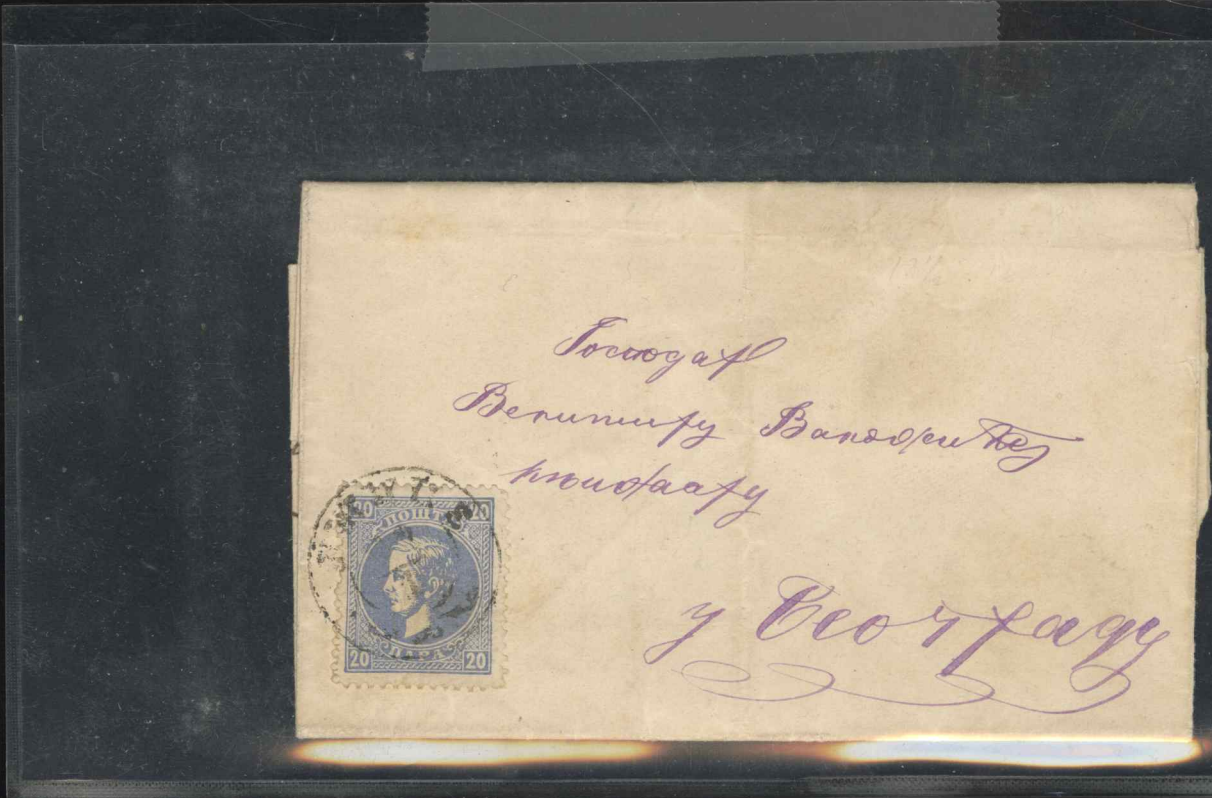 Господар
Велимиру Валожићу
књижару
у Београду
20 20
ПОШТА
ПАРА
20 20